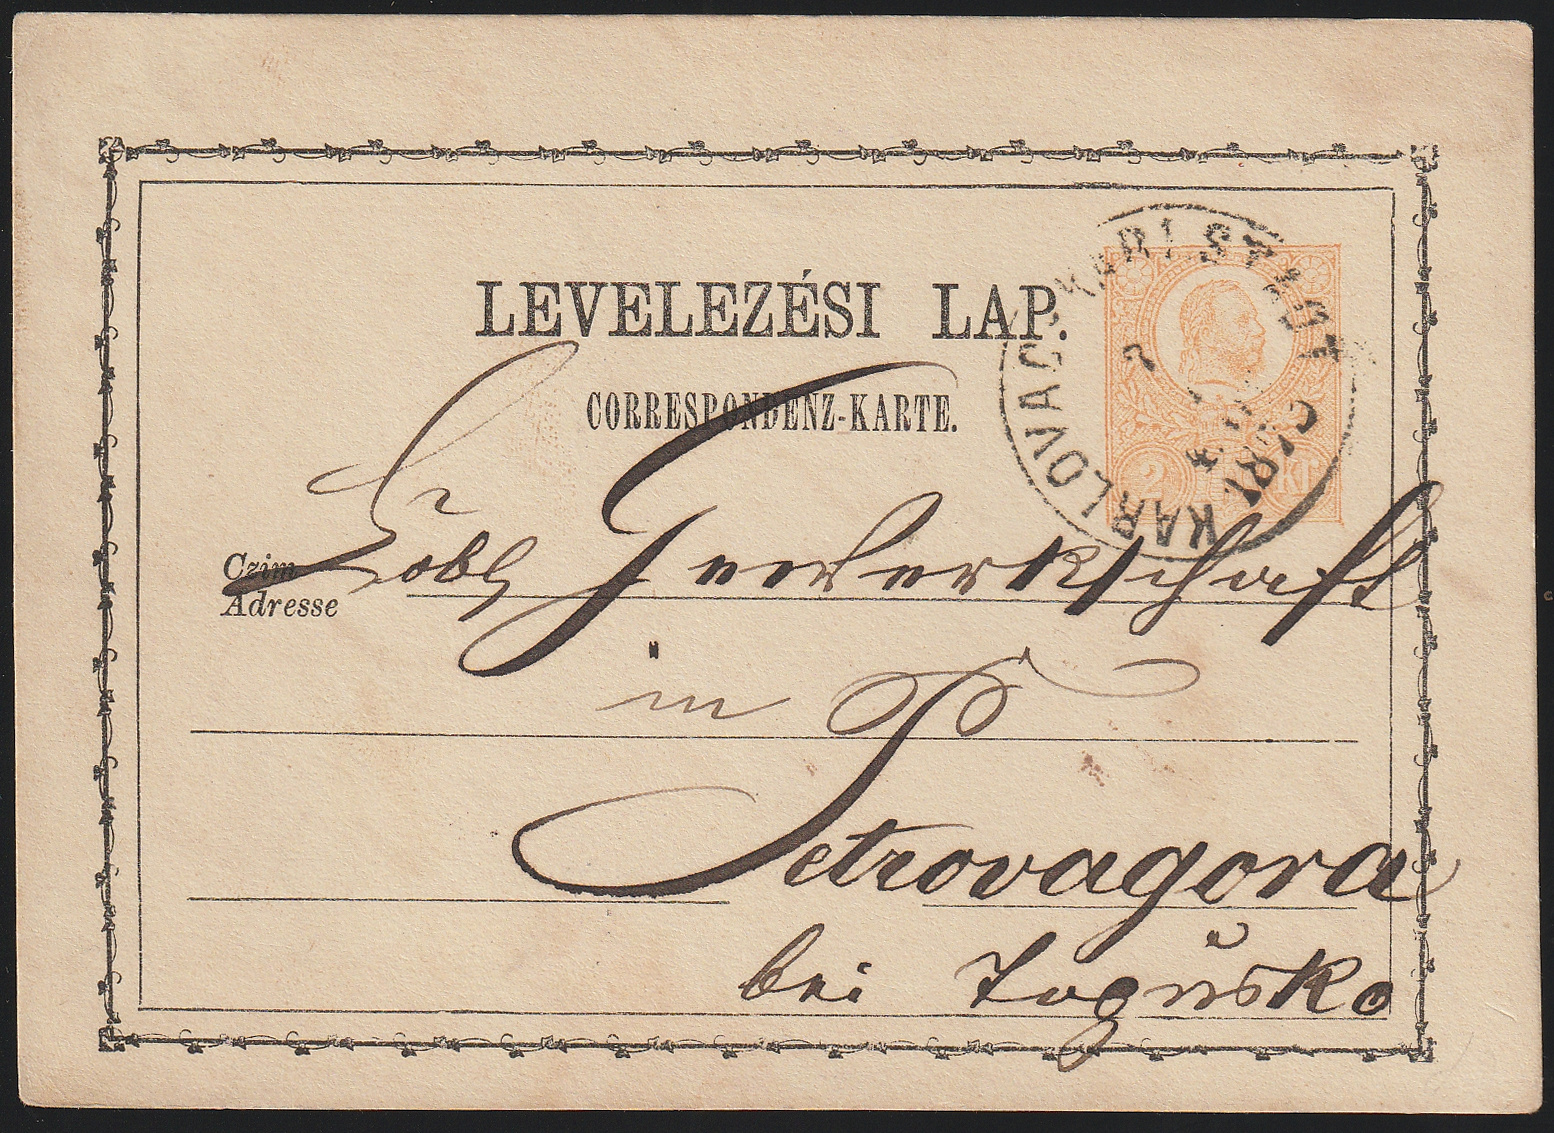 LEVELEZÉSI LAP.
CORRESPONDENZ-KARTE.
KARLOVAC KARLSTADT
2 KR
Czim
Adresse
Löbl Gewerkschaft
in
Petrovagora
bei Topusko